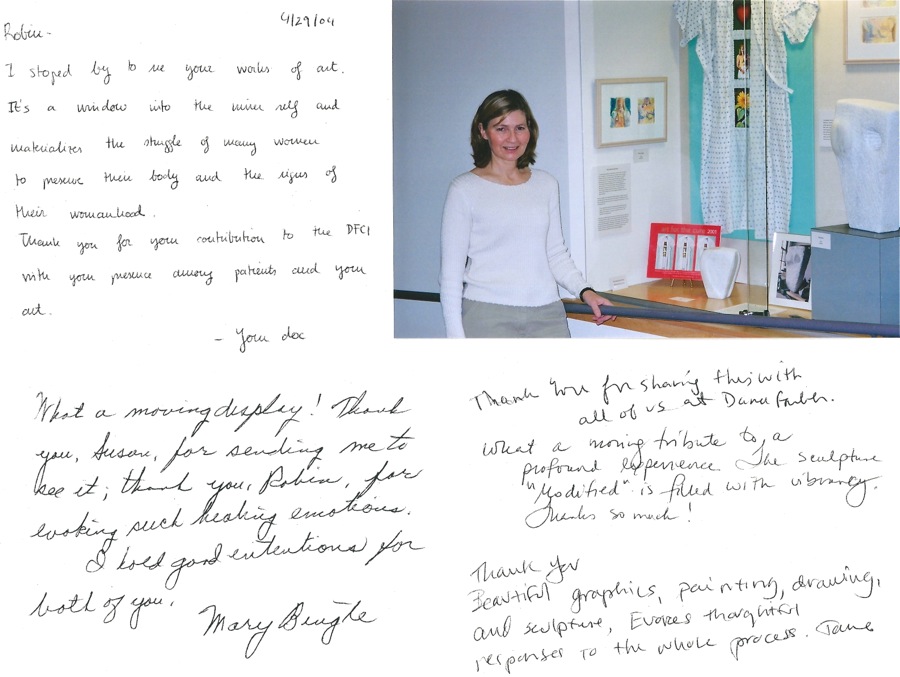 4/29/04
Robin-
I stoped by to see your works of art.
It's a window into the inner self and
materializes the struggle of many women
to preserve their body and the signs of
their womanhood.
Thank you for your contribution to the DFCI
with your presence among patients and your
art.
- Your doc
art for the cure 2001
What a moving display! Thank
you, Susan, for sending me to
see it; thank you, Robin, for
evoking such healing emotions.
I hold good intentions for
both of you.
Mary
Thank You for sharing this with
all of us at Dana Farber.
What a moving tribute to a
profound experience. The sculpture
"Modified" is filled with vibrancy.
Thanks so much!
Thank You
Beautiful graphics, painting, drawing,
and sculpture, Evokes thoughtful
responses to the whole process.